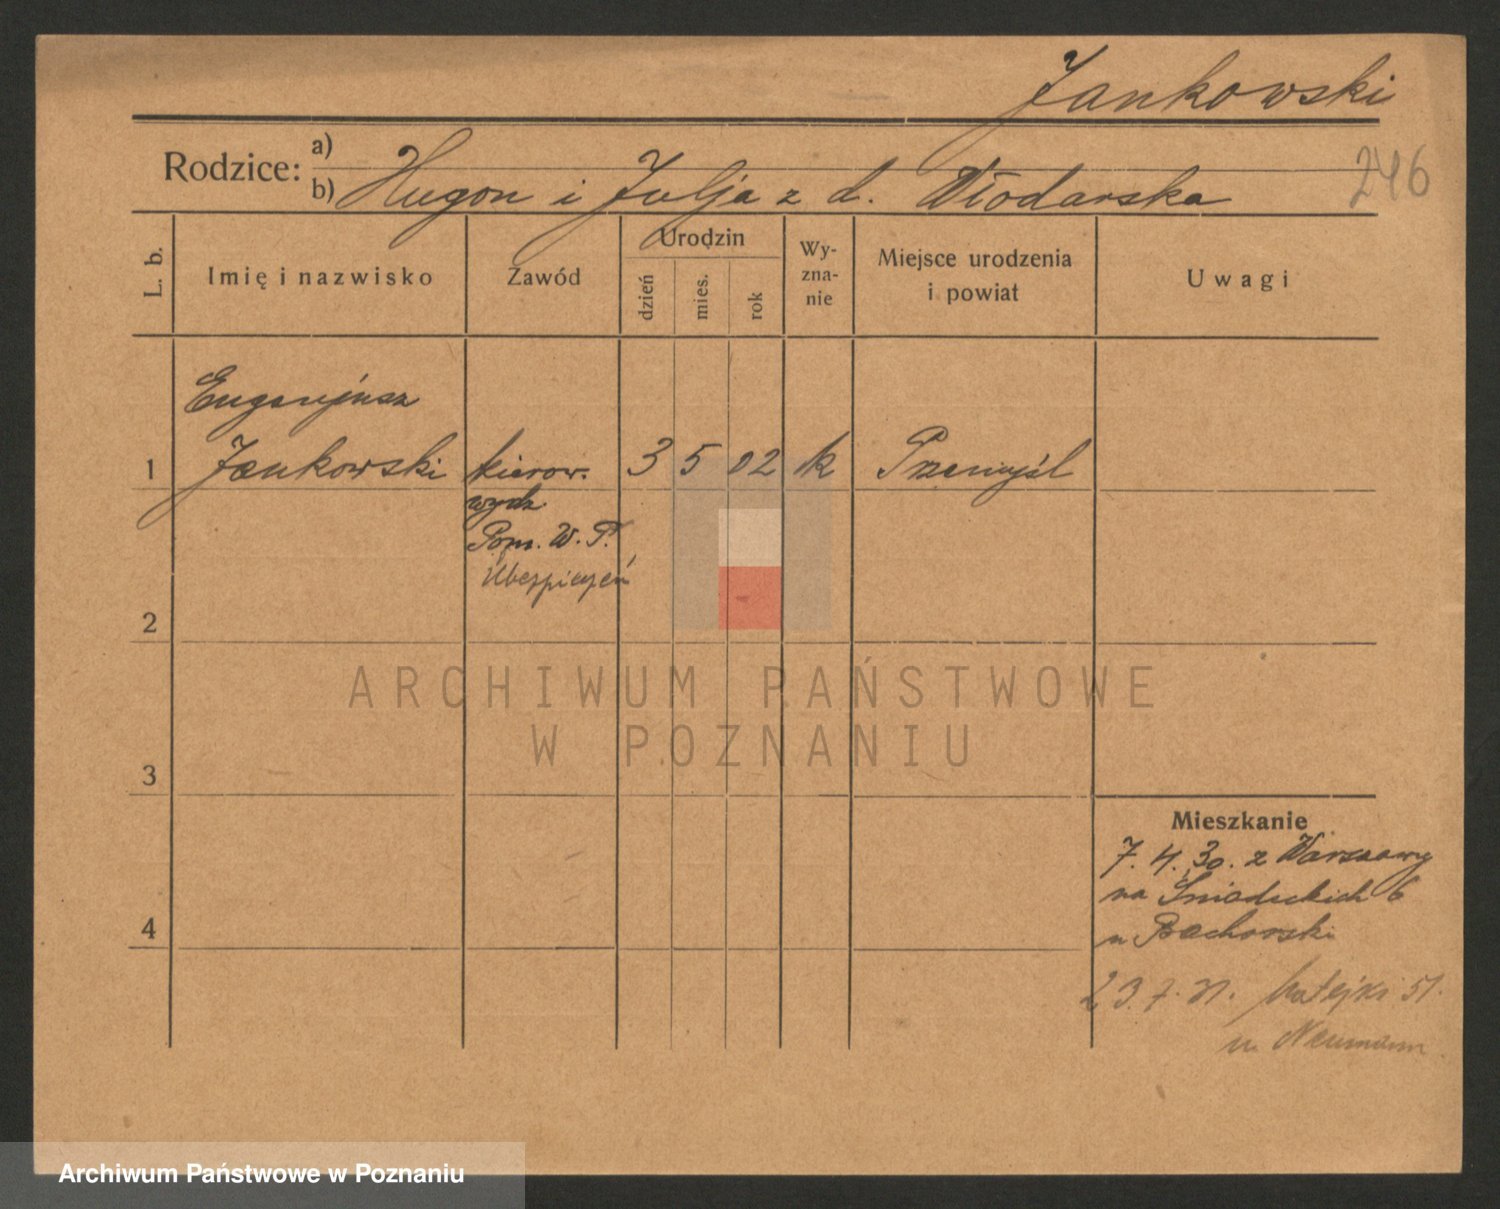 Jankowski
246
Rodzice: a)
b) Hugon i Julja z d. Włodarska
L. b.
Imię i nazwisko
Zawód
Urodzin
dzień
mies.
rok
Wy-
zna-
nie
Miejsce urodzenia
i powiat
Uwagi
Eugenjusz
1 Jankowski kierow. 3 5 02 k Przemyśl
wydz
Pom. W. P.
Ubezpieczeń
2
3
4
ARCHIWUM PAŃSTWOWE
W POZNANIU
Mieszkanie
7. 4. 30. z Warszawy
na Śniadeckich 6
u Bachorski
23. 7. 31. Matejki 51.
u Neumann
Archiwum Państwowe w Poznaniu